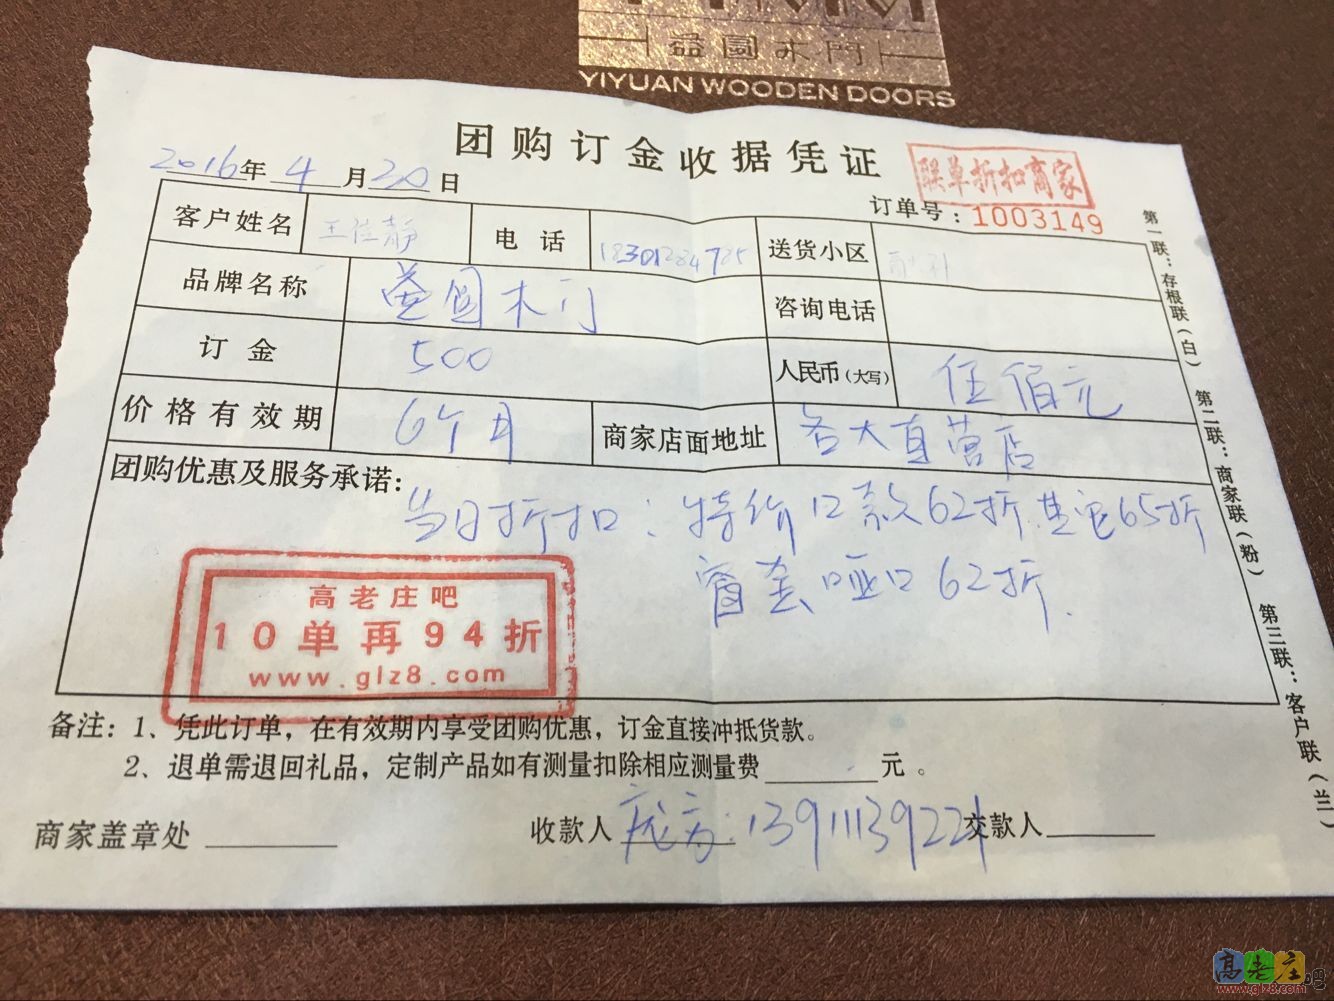 益圆木门
YIYUAN WOODEN DOORS
团购订金收据凭证
联单折扣商家
2016年 4 月 20 日
订单号：1003149
客户姓名 王佳静 电话 送货小区
品牌名称 益圆木门 咨询电话
订金 500 人民币（大写） 伍佰元
价格有效期 6个月 商家店面地址 各大直营店
团购优惠及服务承诺：
当日折扣：特价口款62折 其它65折
窗套哑口62折.
高老庄吧
10单再94折
www.glz8.com
备注：1、凭此订单，在有效期内享受团购优惠，订金直接冲抵货款。
2、退单需退回礼品，定制产品如有测量扣除相应测量费 元。
商家盖章处 收款人 交款人
第一联：存根联（白） 第二联：商家联（粉） 第三联：客户联（兰）
高老庄吧
www.glz8.com